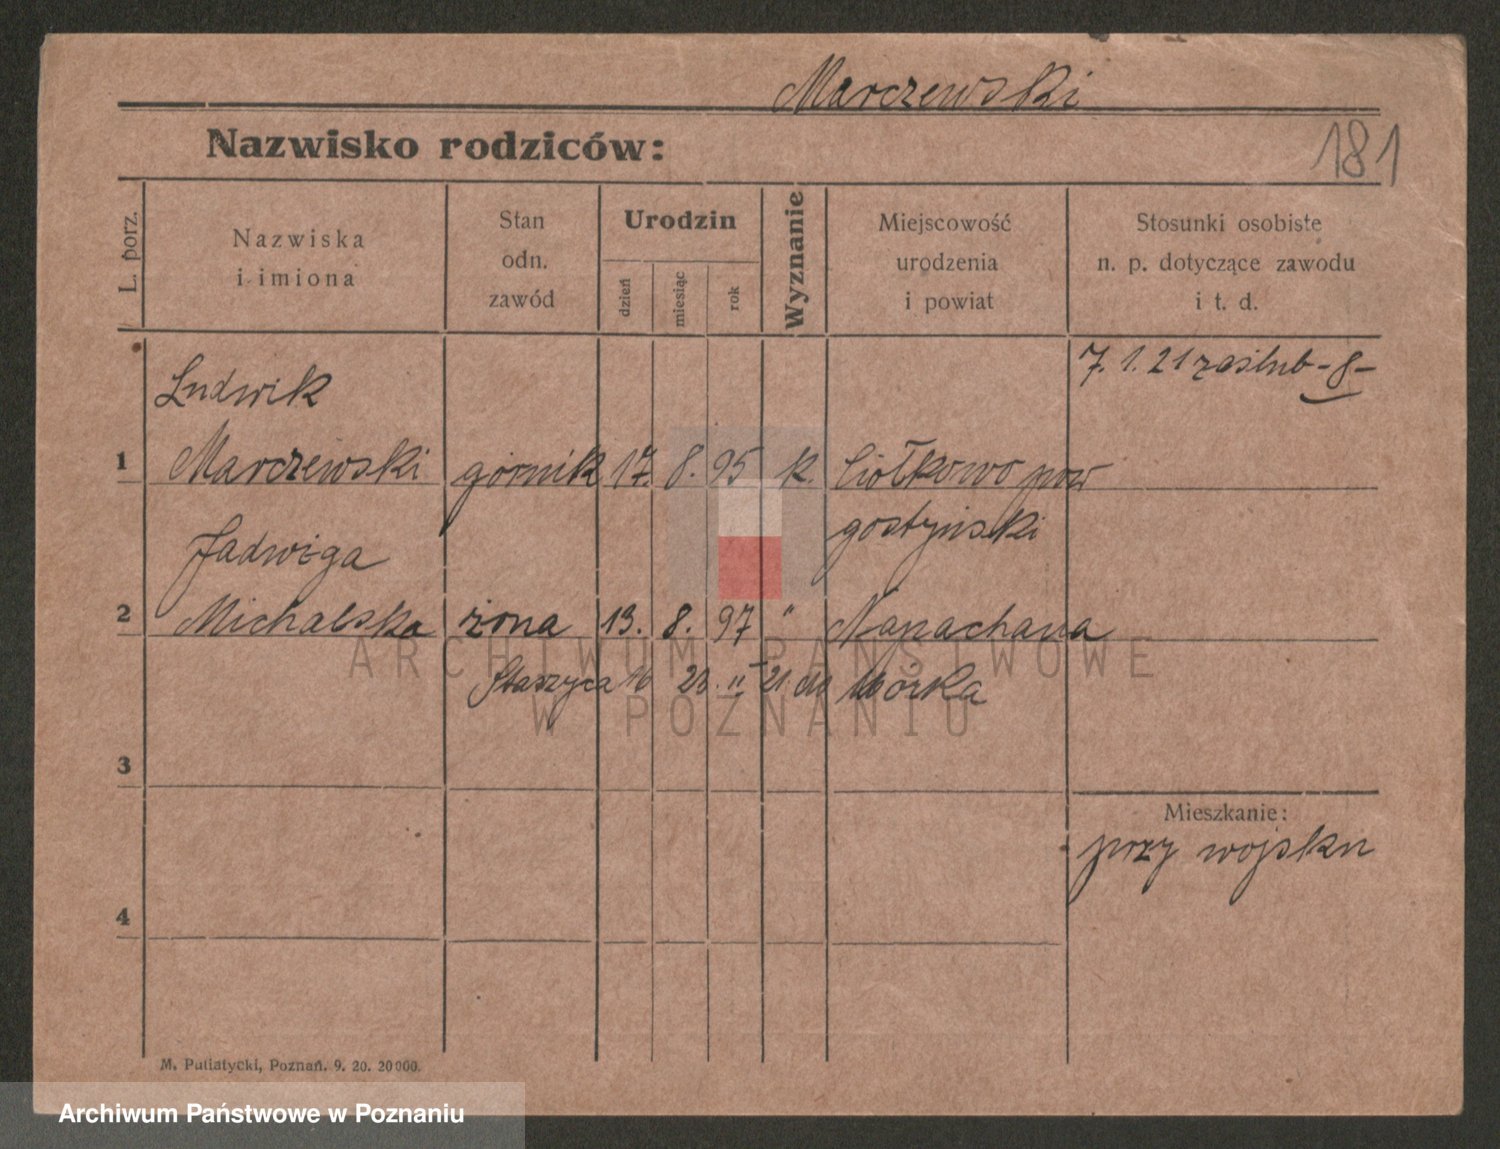 Marczewski
181
Nazwisko rodziców:
L. porz.
Nazwiska
i imiona
Stan
odn.
zawód
Urodzin
dzień
miesiąc
rok
Wyznanie
Miejscowość
urodzenia
i powiat
Stosunki osobiste
n. p. dotyczące zawodu
i t. d.
7. 1. 21 zaślub -8-
Ludwik
1 Marczewski górnik 17. 8. 95 k. Ciołkowo pow
gostyński
Jadwiga
2 Michalska żona 13. 8. 97 " Napachana
Staszyca 16 23. II 21. do Wózka
ARCHIWUM PAŃSTWOWE
W POZNANIU
3
Mieszkanie:
przy wojsku
4
M. Putiatycki, Poznań. 9. 20. 20000.
Archiwum Państwowe w Poznaniu